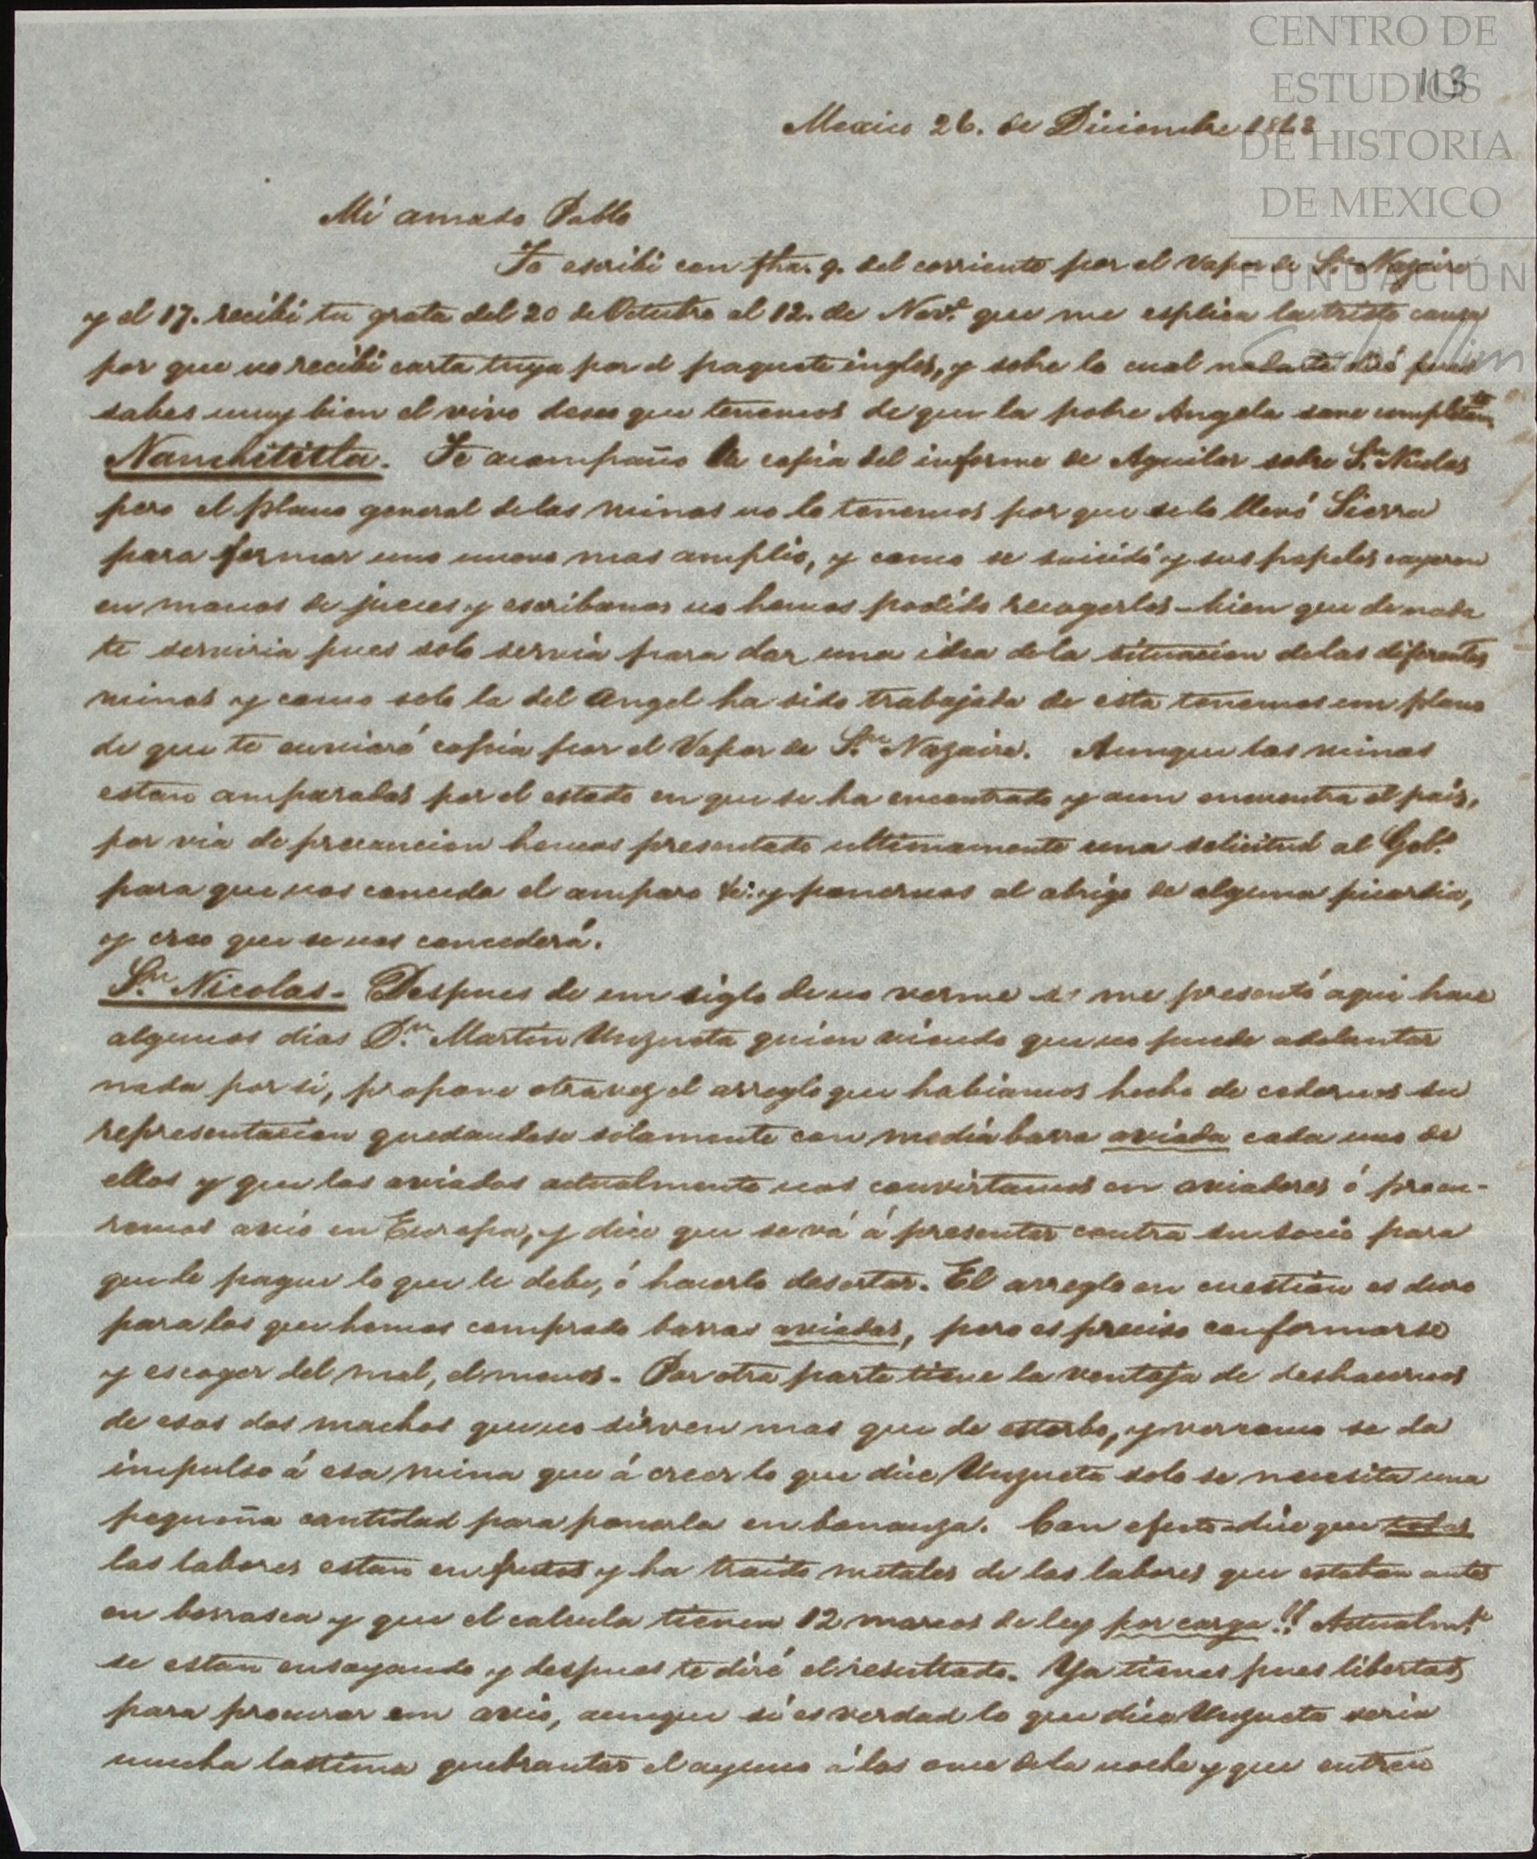 CENTRO DE
ESTUDIOS
DE HISTORIA
DE MEXICO
FUNDACIÓN
113
Mexico 26. de Diciembre 1863
Mi amado Pablo
Te escribí con fha. 9. del corriente por el Vapor de Sn. Nazaire
y el 17. recibí tu grata del 20 de Octubre al 12. de Nove. que me esplica la triste causa
por que no recibí carta tuya por el paquete ingles, y sobre lo cual nada te diré pues
sabes muy bien el vivo deseo que tenemos de que la pobre Angela sane completamte.
Nanchititla. Te acompaño la copia del informe de Aguilar sobre Sn. Nicolas
pero el plano general de las minas no lo tenemos por que se lo llevó Sierra
para formar uno nuevo mas amplio, y como se suicidó y sus papeles cayeron
en manos de jueces y escribanos no hemos podido recogerlos - bien que de nada
te serviria pues solo servía para dar una idea de la situacion de las diferentes
minas y como solo la del Angel ha sido trabajada de esta tenemos un plano
de que te enviaré copia por el Vapor de Sn. Nazaire. Aunque las minas
estan amparadas por el estado en que se ha encontrado y aun encuentra el país,
por via de precaucion hemos presentado ultimamente una solicitud al Gobo.
para que nos conceda el amparo &c. y ponernos al abrigo de alguna picardia,
y creo que se nos concederá.
Sn. Nicolas - Despues de un siglo de no verme se me presentó aqui hace
algunos dias Dn. Martin Unzueta quien viendo que no puede adelantar
nada por si, propone otra vez el arreglo que habiamos hecho de cedernos su
representacion quedandose solamente con media barra aviada cada uno de
ellos y que los aviados actualmente nos convirtamos en aviadores ó procu-
remos avío en Europa, y dice que se vá á presentar contra su socio para
que le pague lo que le debe, ó hacerlo desertar. El arreglo en cuestion es duro
para los que hemos comprado barras aviadas, pero es preciso conformarse
y escoger del mal, el menos. Por otra parte tiene la ventaja de deshacernos
de esos dos machos que no sirven mas que de estorbo, y veremos se da
impulso á esa mina que á creer lo que dice Unzueta solo se necesita una
pequeña cantidad para ponerla en bonanza. Con efecto dice que todas
las labores estan en frutos y ha traido metales de las labores que estaban antes
en borrasca y que el calcula tienen 12 marcos de ley por carga!! Actualmte.
se estan ensayando y despues te diré el resultado. Ya tienes pues libertad
para procurar un avío, aunque si es verdad lo que dice Unzueta seria
mucha lastima quebrantar el ayuno á las once de la noche y que entren